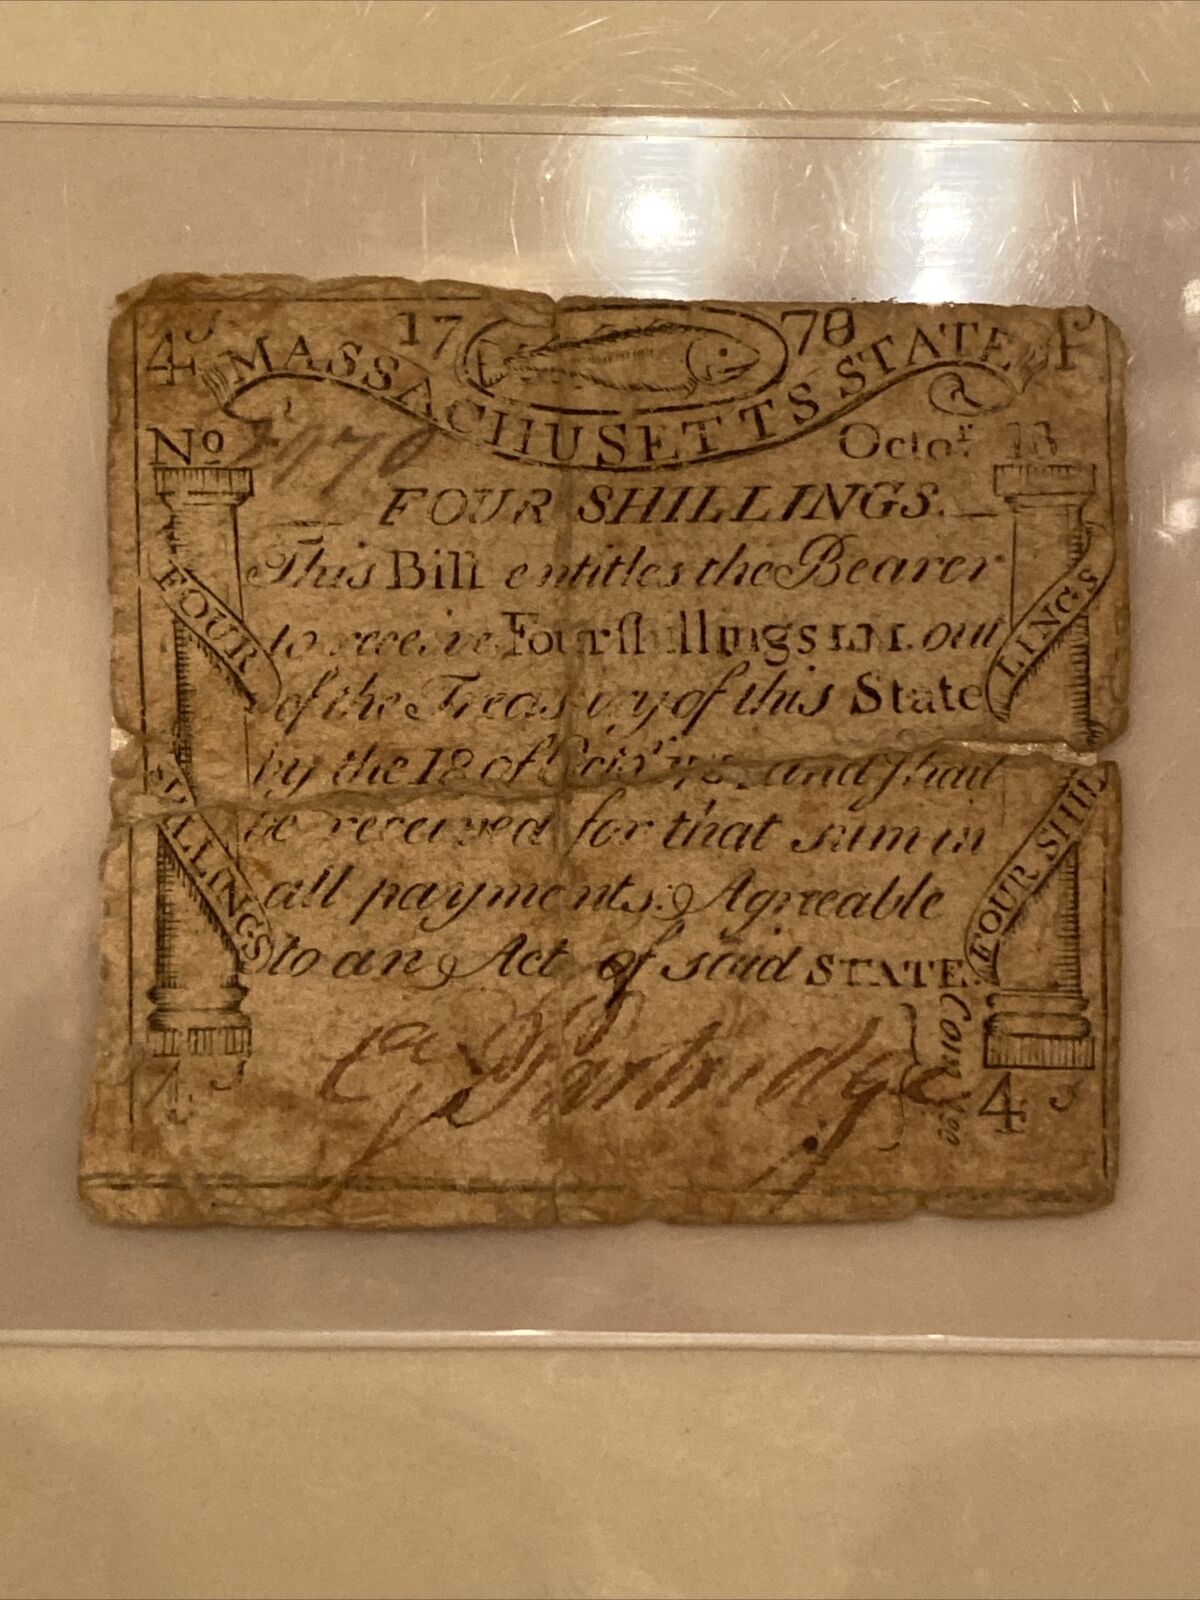 4s 17 78
MASSACHUSETTS STATE
No Octor. 18
FOUR SHILLINGS.
This Bill entitles the Bearer
to receive Four shillings L.M. out
of the Treasury of this State
by the 18 of and shall
be received for that sum in
all payments. Agreeable
to an Act of said STATE.
FOUR SHILLINGS
FOUR SHILLINGS
Partridge
4s 4s